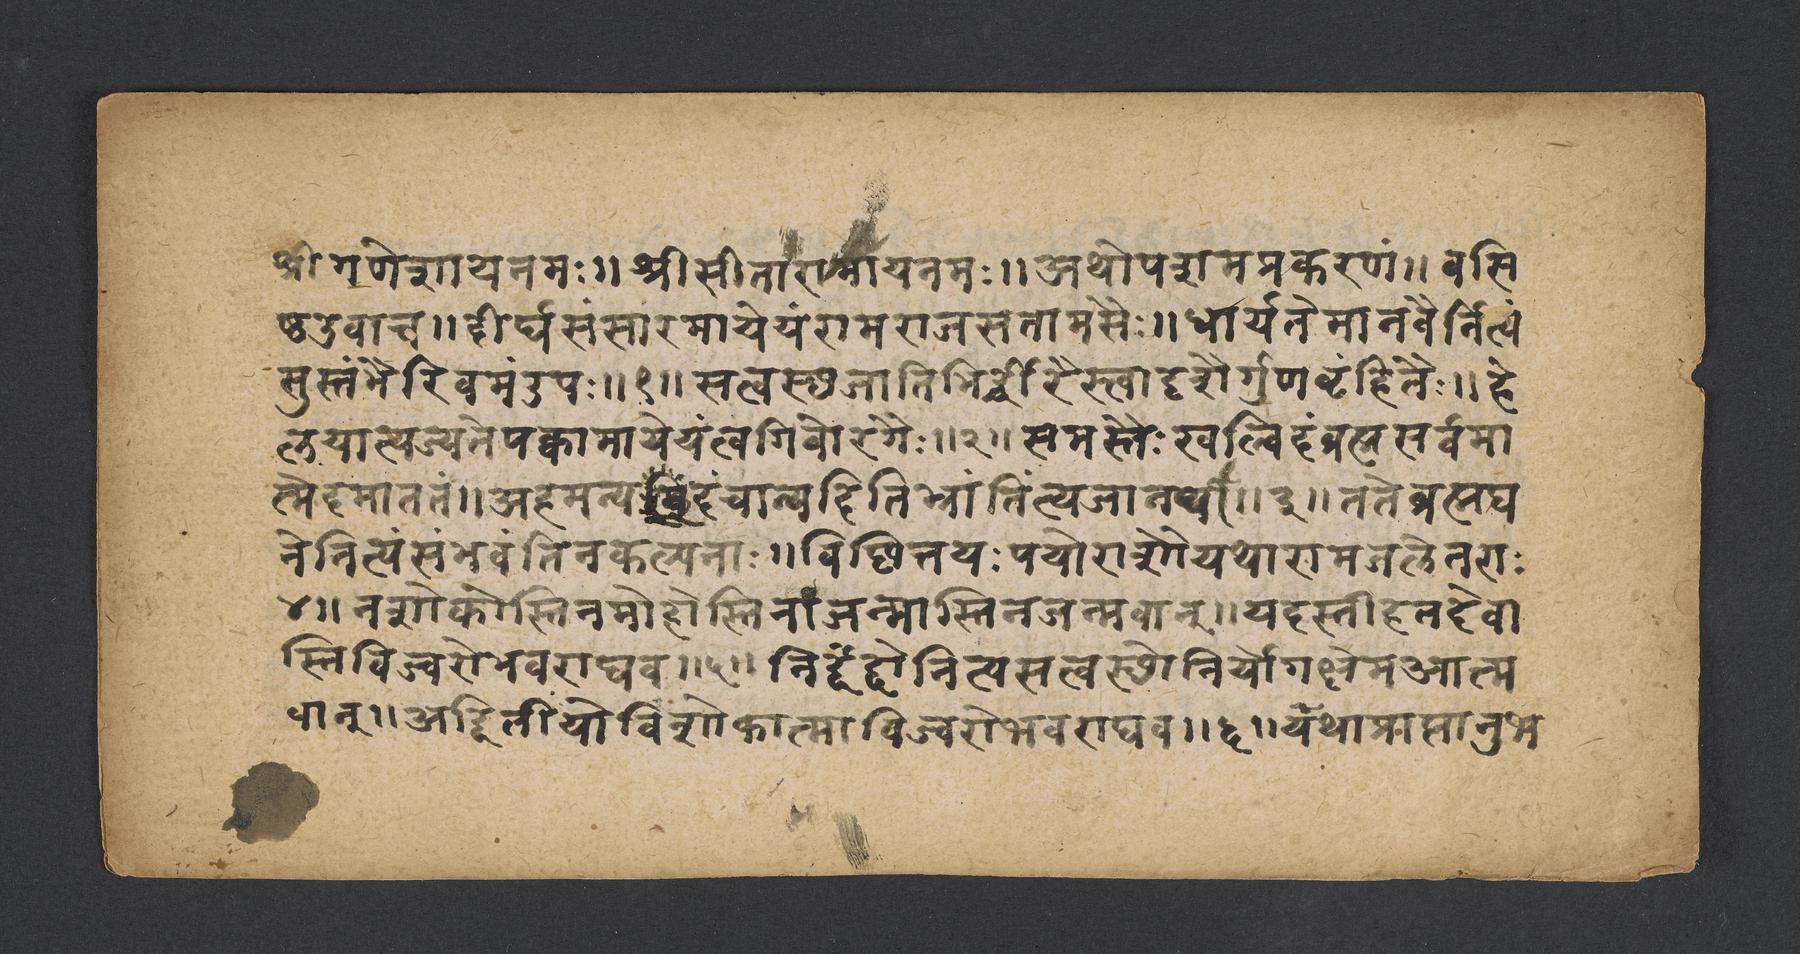 श्रीगणेशायनमः॥श्रीसीतारामायनमः॥अथोपशमप्रकरणं॥वसि
ष्ठउवाच॥दीर्घसंसारमायेयंरामराजसतामसैः॥धार्यतेमानवैर्नित्यं
सुस्तंभैरिवमंडपः॥१॥सत्वस्थजातिभिर्धीरैस्त्वादृशैर्गुणबृंहितैः॥हे
लयात्यज्यतेपक्वामायेयंत्वगिवोरगैः॥२॥समस्तैःखल्विदंब्रह्मसर्वमा
त्मेदमाततं॥अहमन्यदिदंचान्यदितिभ्रांतिंत्यजानघ॥३॥ततेब्रह्मघ
नेनित्यंसंभवंतिनकल्पनाः॥विछित्तयःपयोराशौयथारामजलेनराः
४॥नशोकोस्तिनमोहोस्तिनजन्मास्तिनजन्मवान्॥यदस्तीहतदेवा
स्तिविज्वरोभवराघव॥५॥निर्द्वंद्वोनित्यसत्वस्थोनिर्योगक्षेमआत्म
वान्॥अद्वितीयोविशोकात्माविज्वरोभवराघव॥६॥यथाप्राप्तानुभ